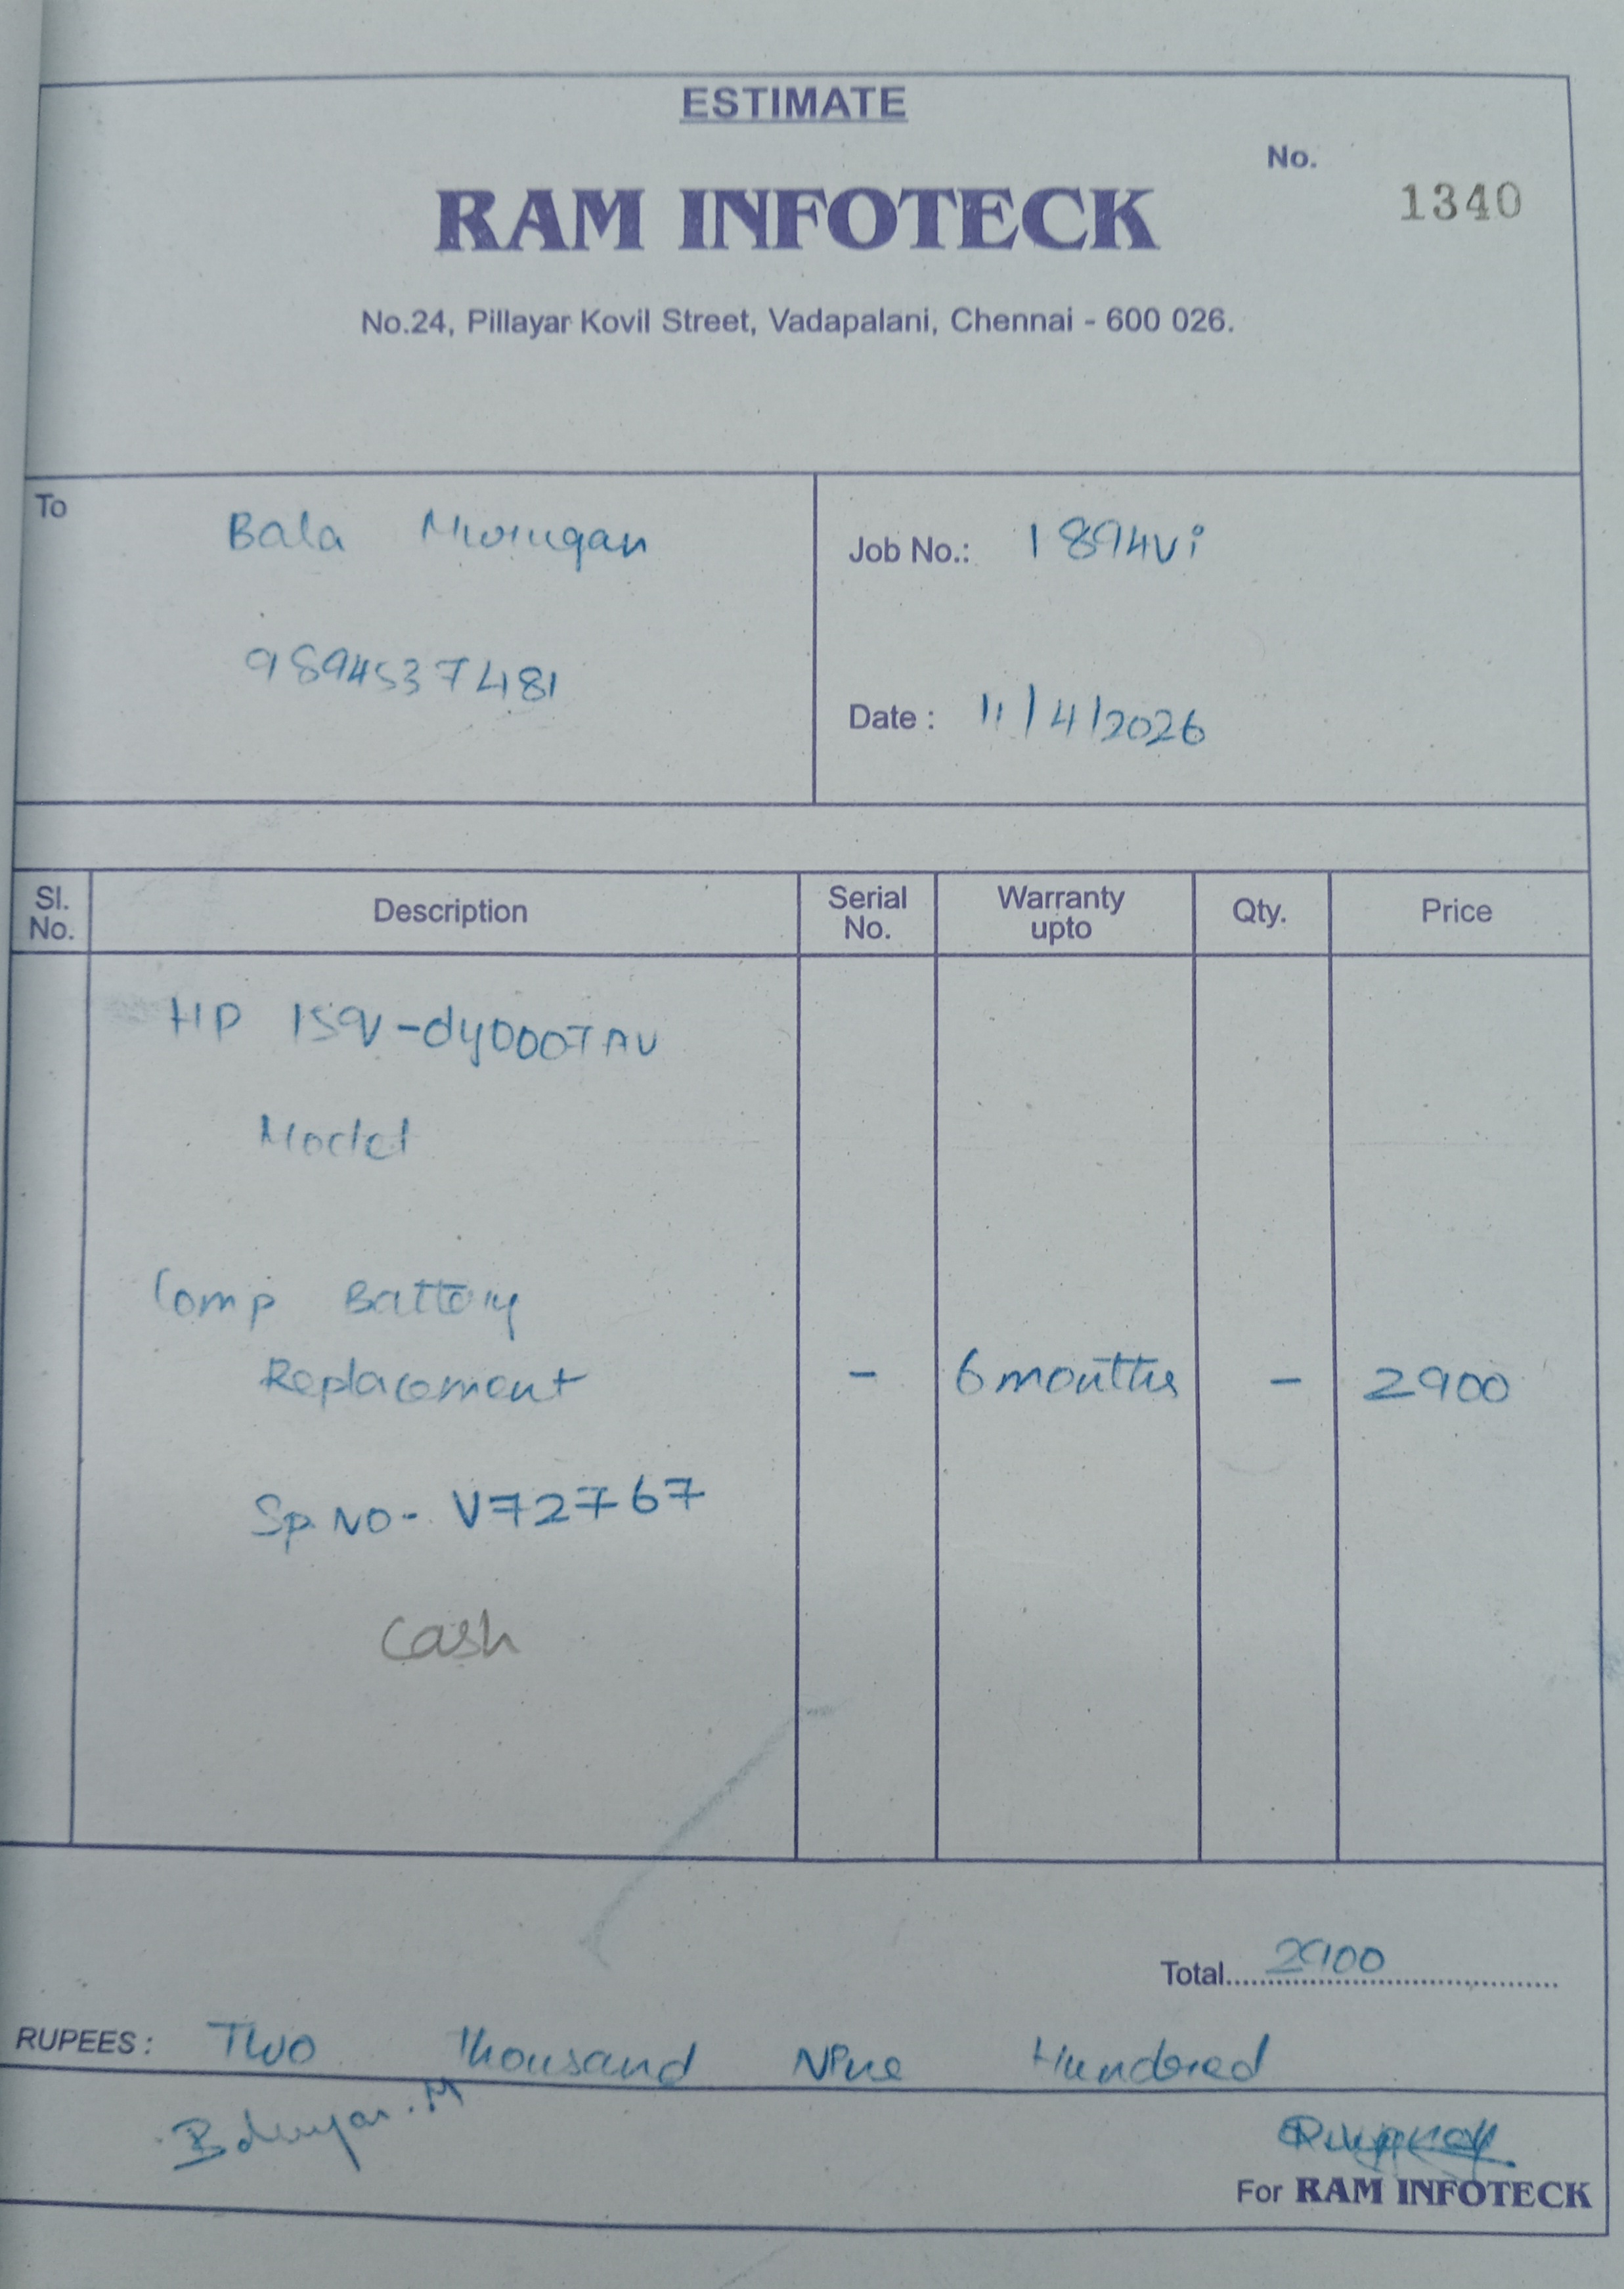 ESTIMATE
No.
1340
RAM INFOTECK
No.24, Pillayar Kovil Street, Vadapalani, Chennai - 600 026.
To
Bala Murugan
Job No.: 1894vi
9894537481
Date : 11/4/2026
Sl. No. Description Serial No. Warranty upto Qty. Price
HP 15q-dy0007AU
Model
Comp Battery
Replacement - 6 months - 2900
Sp.No- V72767
Cash
Total 2900
RUPEES : Two Thousand Nine Hundered
For RAM INFOTECK